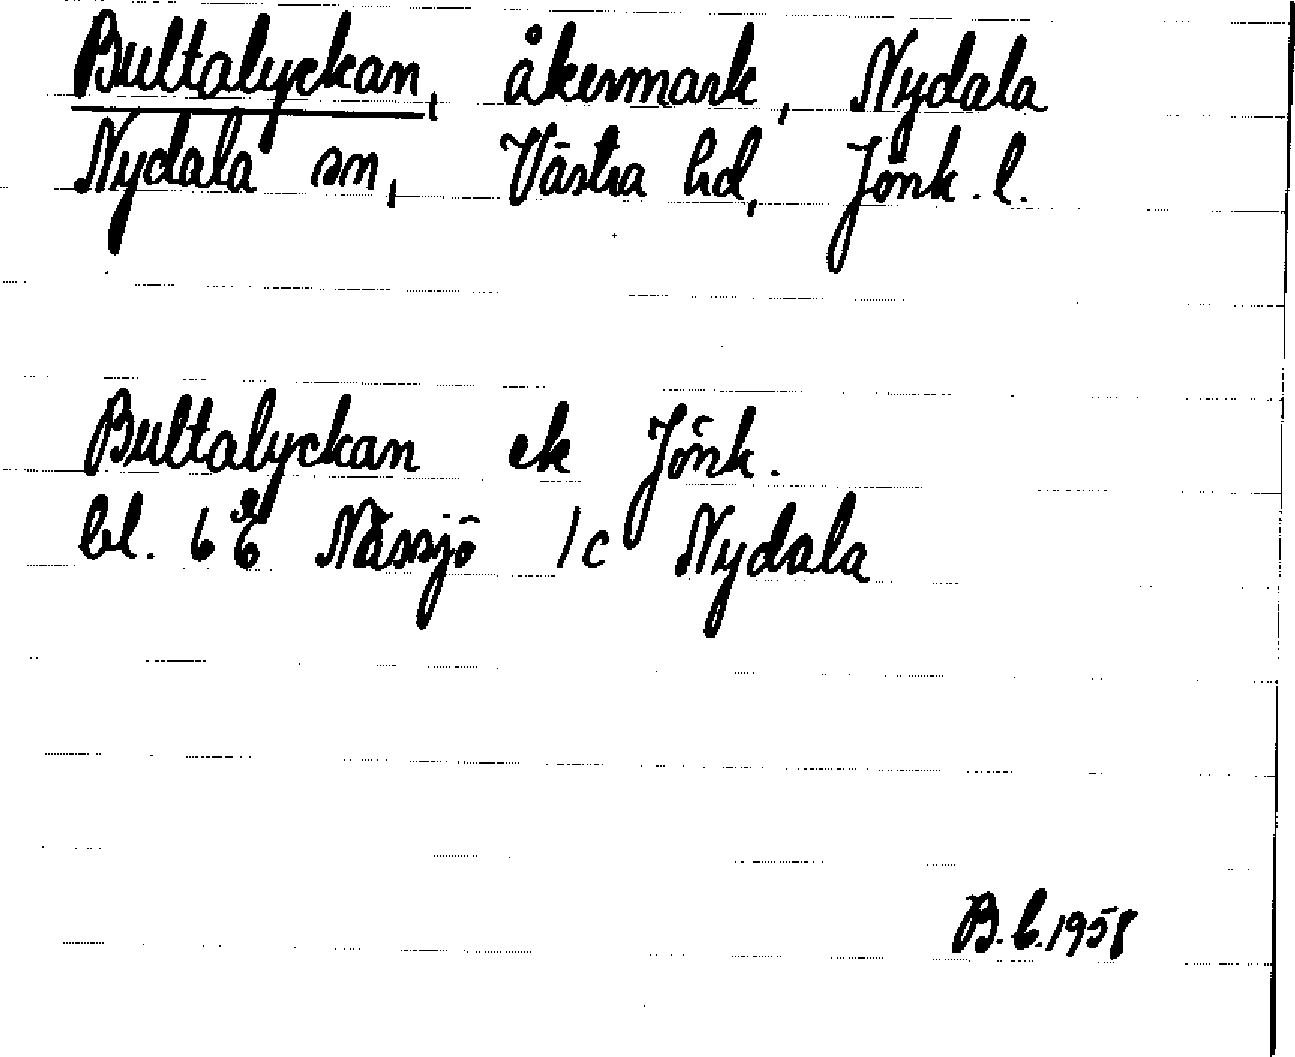 Bultalyckan, åkermark, Nydala
Nydala sn, Västra hd, Jönk. l.
Bultalyckan ek Jönk.
bl. 6 Nässjö 1c Nydala
B. 1958